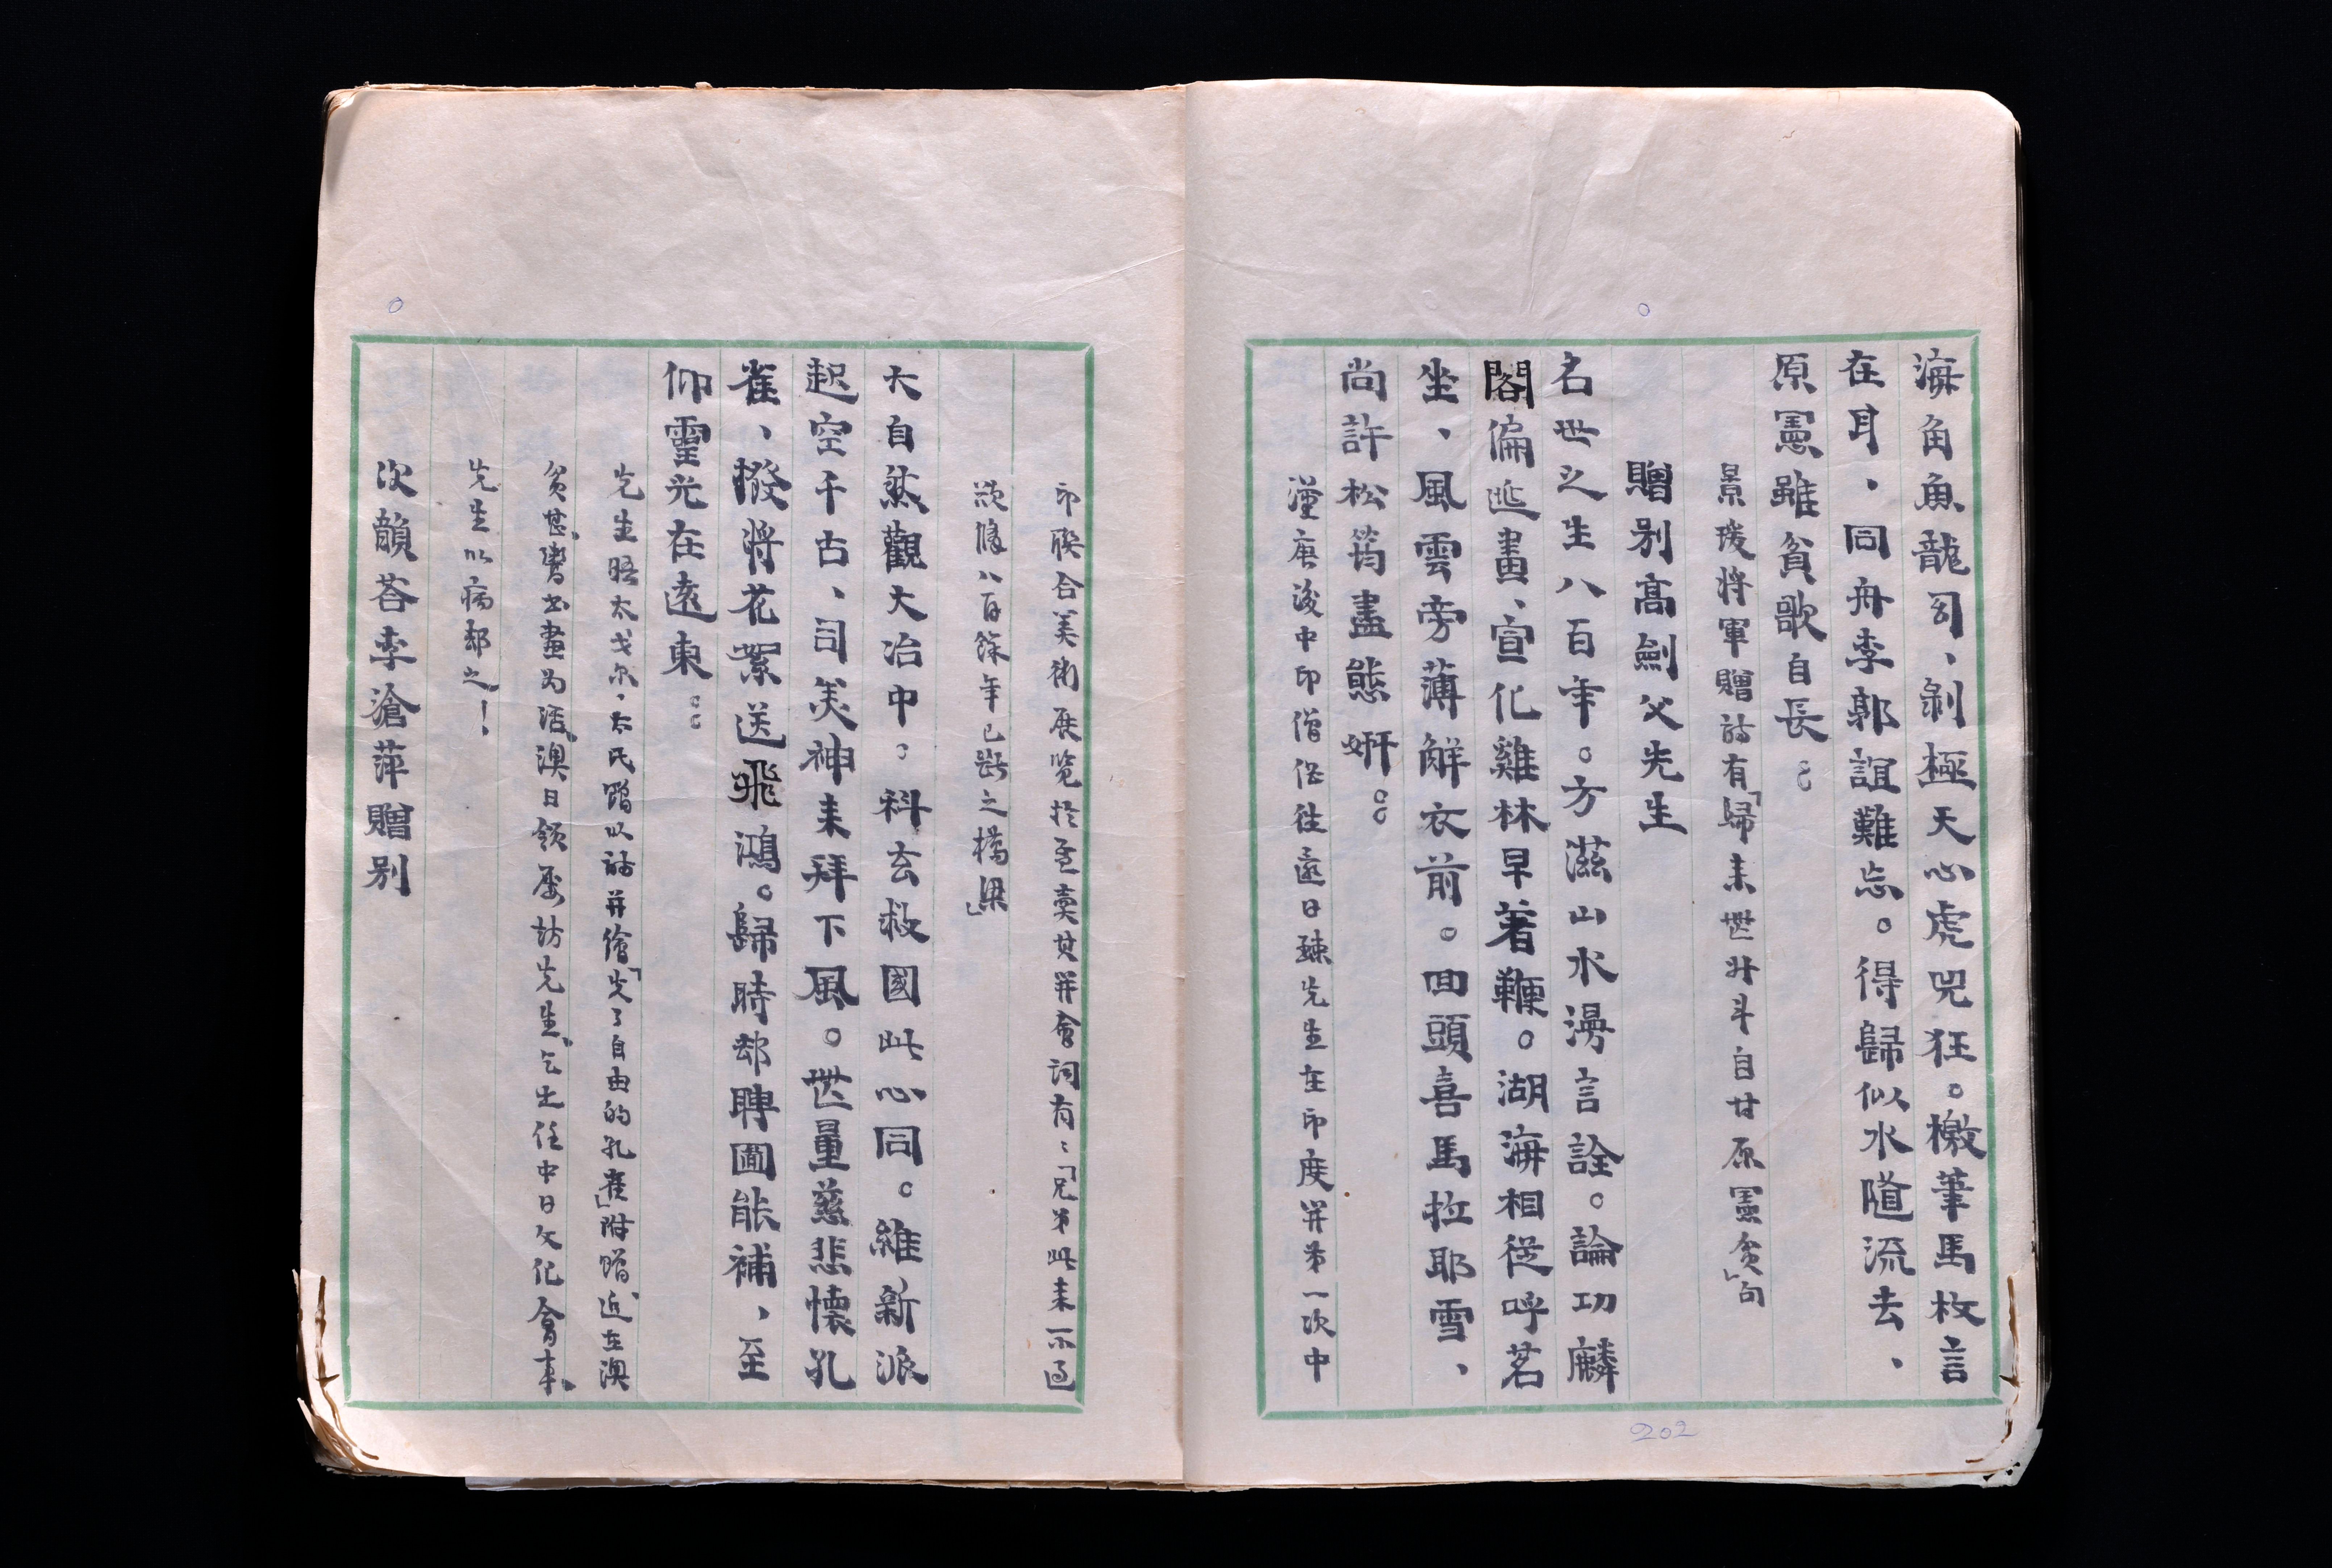 海角魚龍司、剝極天心虎兕狂。檄筆馬枚言
在耳、同舟李郭誼難忘。得歸似水隨流去、
原憲雖貧歌自長。
景瑗將軍贈詩有「歸來世外斗自甘原憲貧」句
贈別高劍父先生
名世之生八百年。方滋山水漫言詮。論功麟
閣偏逃畫、宣化雞林早著鞭。湖海相從呼茗
坐、風雲旁薄解衣前。回頭喜馬拉耶雪、
尚許松筠盡態妍。
漢唐後中印僧侶往還日疎先生在印度舉第一次中
印聯合美術展覽於孟賣其開會詞有：「兄弟此來不過
欲修八百餘年已斷之橋梁」
大自然觀大冶中。科玄救國此心同。維新派
起空千古、司美神來拜下風。世量慈悲懷孔
雀、撥將花絮送飛鴻。歸時却聘圖能補、至
仰靈光在遠東。
先生晤太戈尔、太氏贈以詩并繪「失了自由的孔雀」附贈、近在澳
貧甚、鬻書畫為活、澳日領屢訪先生、乞出任中日文化會事、
先生以病却之！
次韻荅李滄萍贈別
202